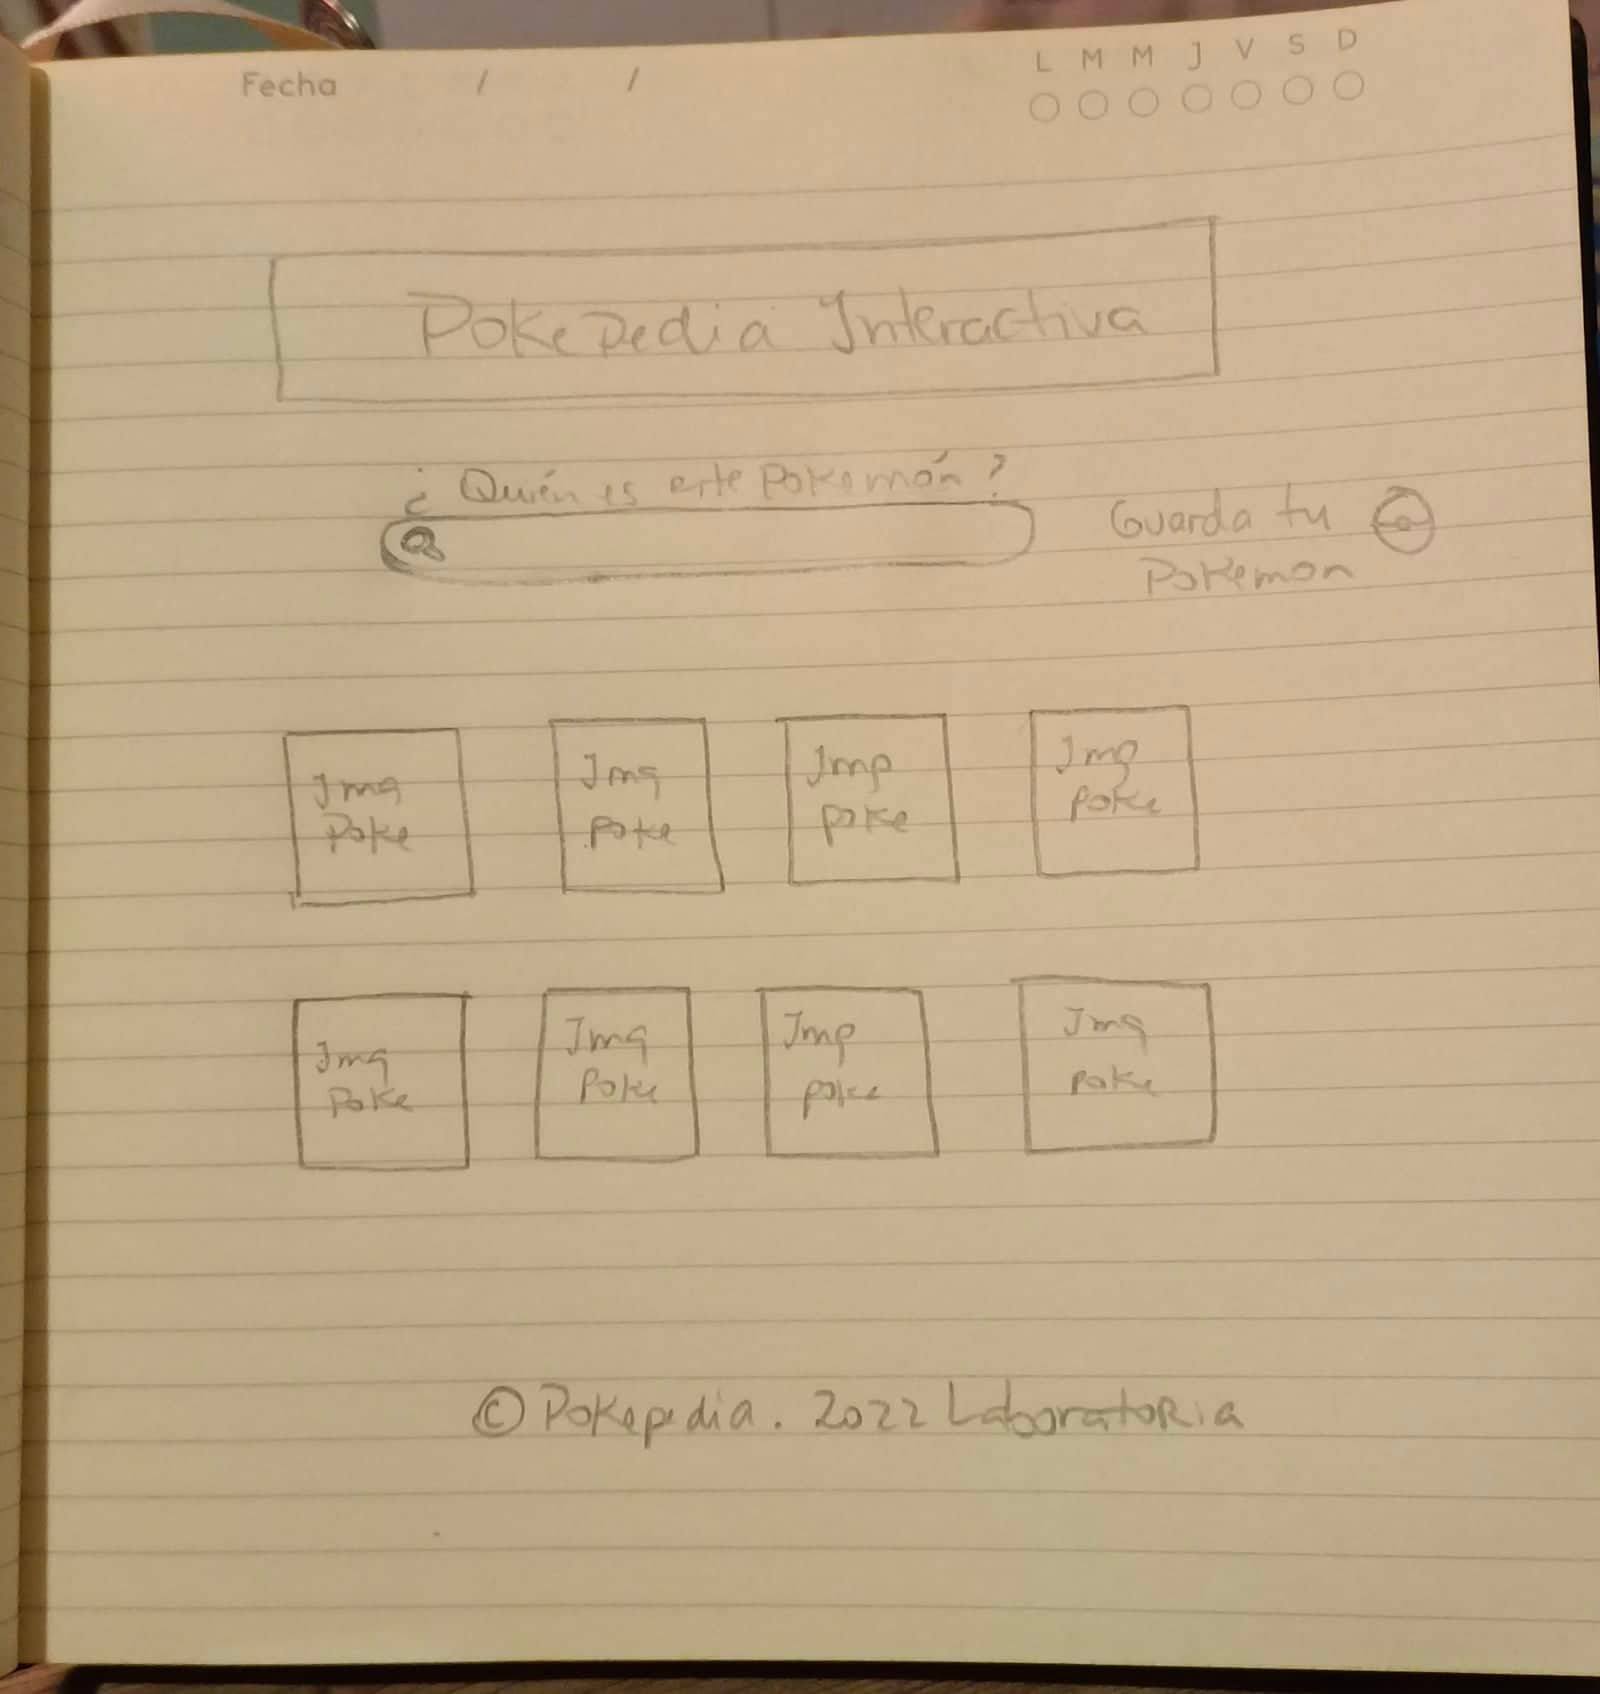 Fecha / /
L M M J V S D
PokePedia Interactiva
¿Quién es este Pokemón?
Guarda tu
Pokemon
Img Img Imp Img
Poke Poke poke poke
Img Img Imp Img
Poke Poke poke poke
© Pokepedia. 2022 Laboratoria